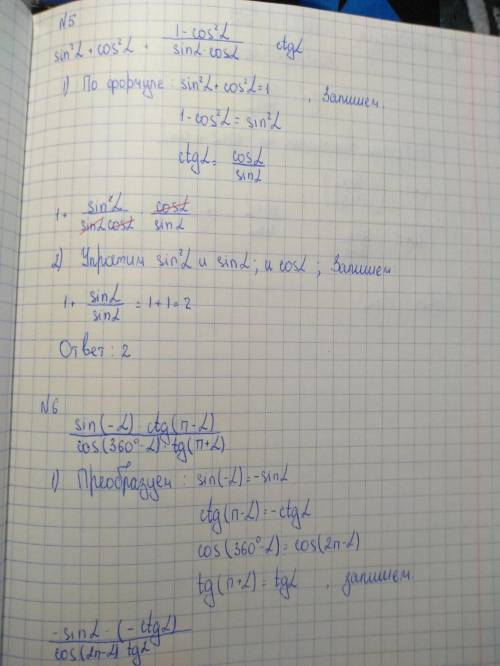 №5
sin²α + cos²α + (1-cos²α)/(sinα·cosα) · ctgα
1) По формуле: sin²α+cos²α=1 , Запишем.
1-cos²α = sin²α
ctgα = cosα/sinα
1 + sin²α/(sinα cosα) · cosα/sinα
2) Упратим sin²α и sinα; и cosα; Запишем
1+ sinα/sinα = 1+1=2
Ответ: 2
№6
(sin(-α) · ctg(π-α))/(cos(360°-α)·tg(π+α))
1) Преобразуем: sin(-α)=-sinα
ctg(π-α)=-ctgα
cos(360°-α)=cos(2π-α)
tg(π+α)=tgα , запишем.
(-sinα · (-ctgα))/(cos(2π-α) tgα)